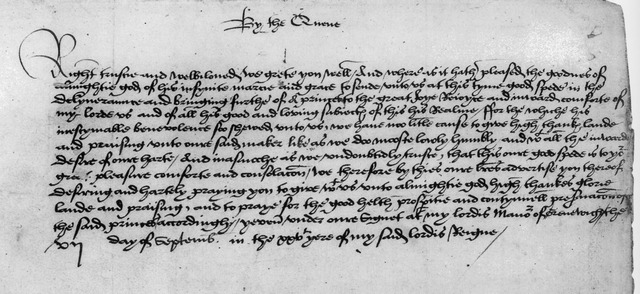 By the Quene
Right trustie and welbiloved, we grete you well, And where as it hath pleased the goodnes of
almightie god of his infynite marcie and grace to sende unto us at this tyme good spede in the
delyveraunce and bringing furthe of a princes to the great Joye Rejoyce and inward comforte of
my lorde us and of all his good and loving subiectes of this his Realme, For the whiche his
inestymable benevolence soo shewed unto us, we have noo litle cause to give high thankes laude
and praising unto oure said maker like as we doo mooste lowly humbly and wt all the inward
desire of oure harte, And inasmuche as we undoubtedly truste, that this oure good spede is to yor
pleasure comforte and consolacon, we therefore by thies oure lres advertise you therof
desiring and hartely praying you to give wt us unto almightie god high thankes glorie
laude and praising, and to praye for the good helth prosperitie and contynuell preservacon of
the said princes accordingly, yeven under oure Signet at my lordis Manor of Grenewiche the
vij day of Septemb. in the xxv yere of my said lordis Reigne